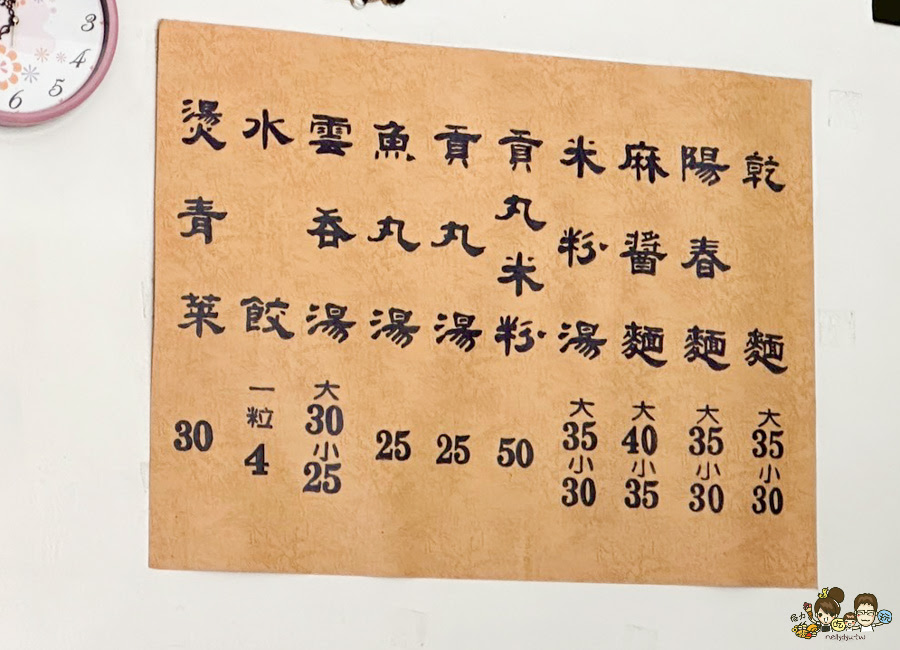 乾麵 大35 小30
陽春麵 大35 小30
麻醬麵 大40 小35
米粉湯 大35 小30
貢丸米粉 50
貢丸湯 25
魚丸湯 25
雲吞湯 大30 小25
水餃 一粒4
燙青菜 30
3
4
5
6